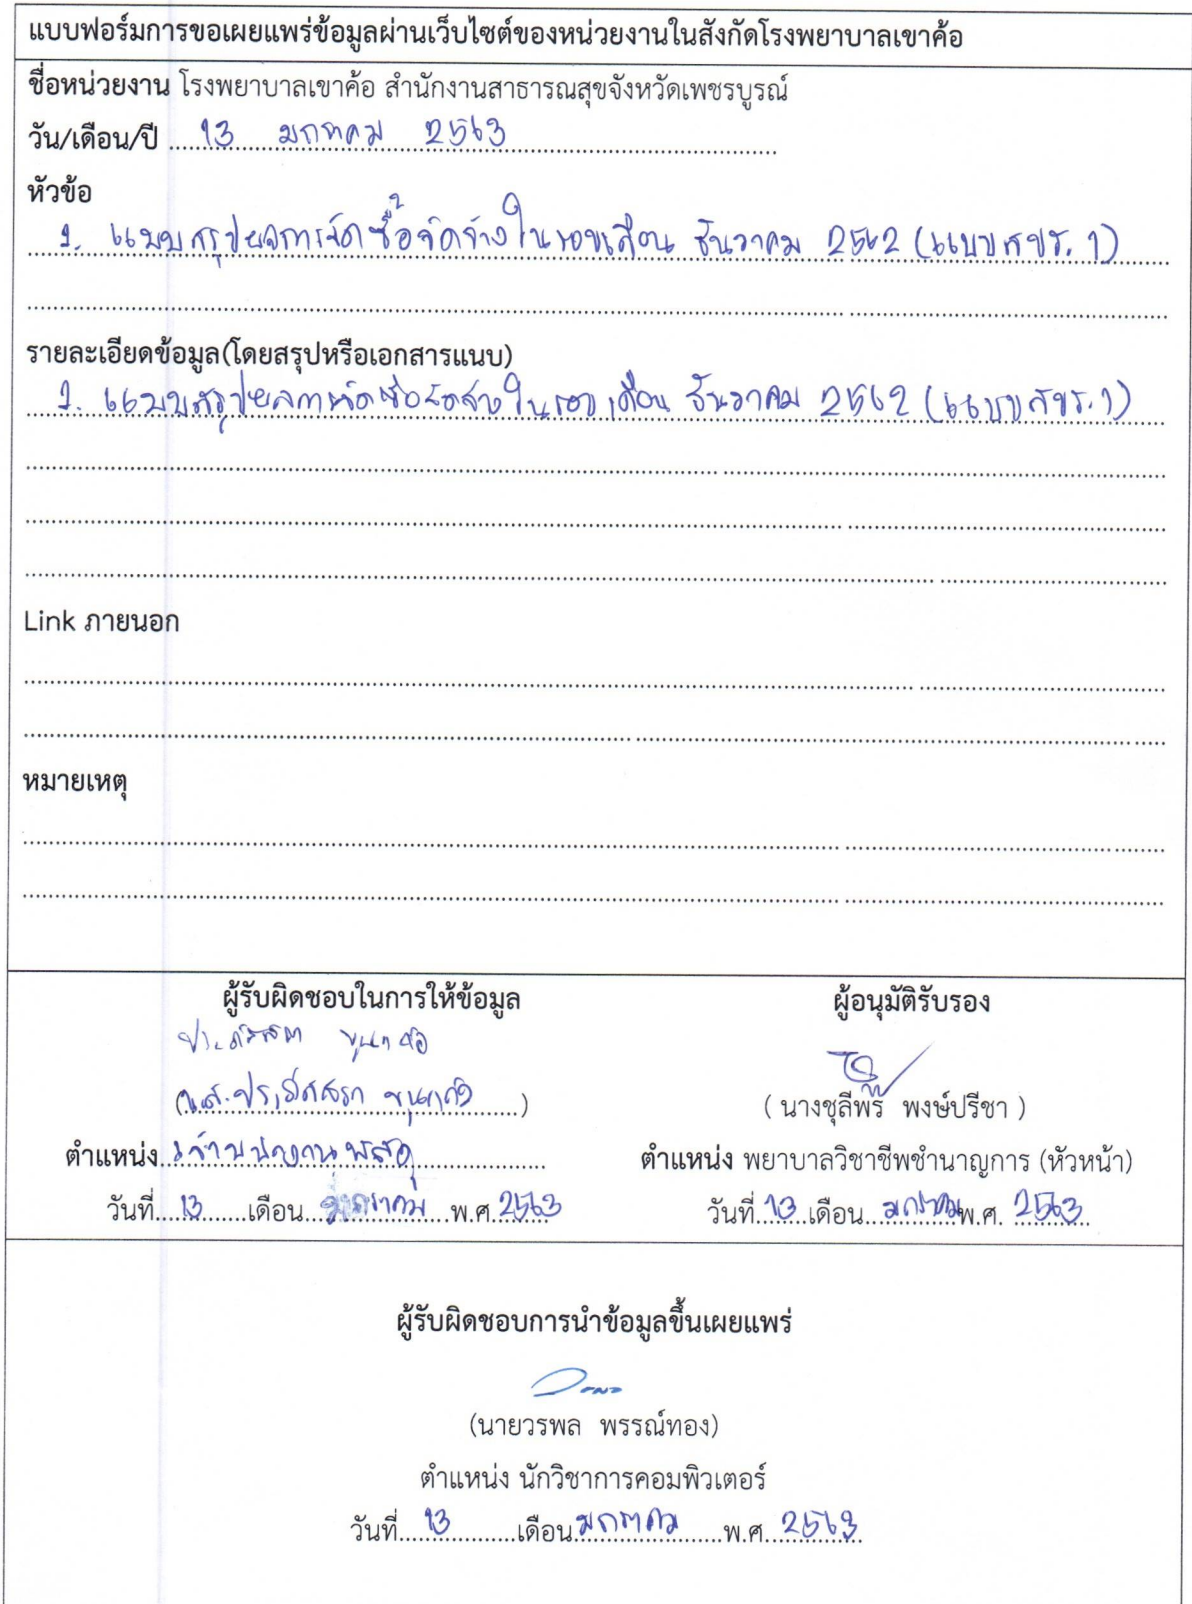 แบบฟอร์มการขอเผยแพร่ข้อมูลผ่านเว็บไซต์ของหน่วยงานในสังกัดโรงพยาบาลเขาค้อ
ชื่อหน่วยงาน โรงพยาบาลเขาค้อ สำนักงานสาธารณสุขจังหวัดเพชรบูรณ์
วัน/เดือน/ปี 13 มกราคม 2563
หัวข้อ
1. แบบสรุปผลการจัดซื้อจัดจ้างในรอบเดือน ธันวาคม 2562 (แบบ สขร. 1)
รายละเอียดข้อมูล(โดยสรุปหรือเอกสารแนบ)
1. แบบสรุปผลการจัดซื้อจัดจ้างในรอบเดือน ธันวาคม 2562 (แบบ สขร. 1)
Link ภายนอก
หมายเหตุ
ผู้รับผิดชอบในการให้ข้อมูล ผู้อนุมัติรับรอง
( นางชุลีพร พงษ์ปรีชา )
ตำแหน่ง เจ้าพนักงานพัสดุ ตำแหน่ง พยาบาลวิชาชีพชำนาญการ (หัวหน้า)
วันที่ 13 เดือน มกราคม พ.ศ. 2563 วันที่ 13 เดือน มกราคม พ.ศ. 2563
ผู้รับผิดชอบการนำข้อมูลขึ้นเผยแพร่
(นายวรพล พรรณทอง)
ตำแหน่ง นักวิชาการคอมพิวเตอร์
วันที่ 13 เดือน มกราคม พ.ศ. 2563